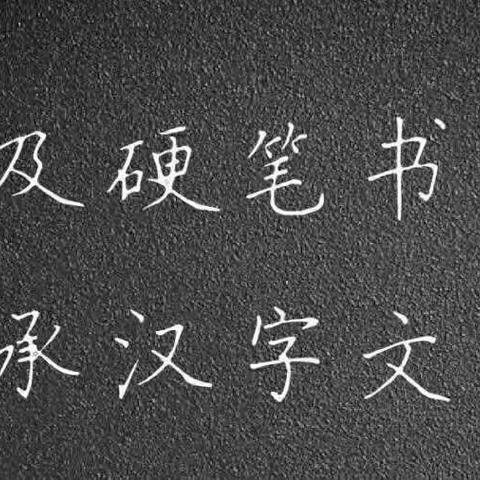 及硬笔书
承汉字文